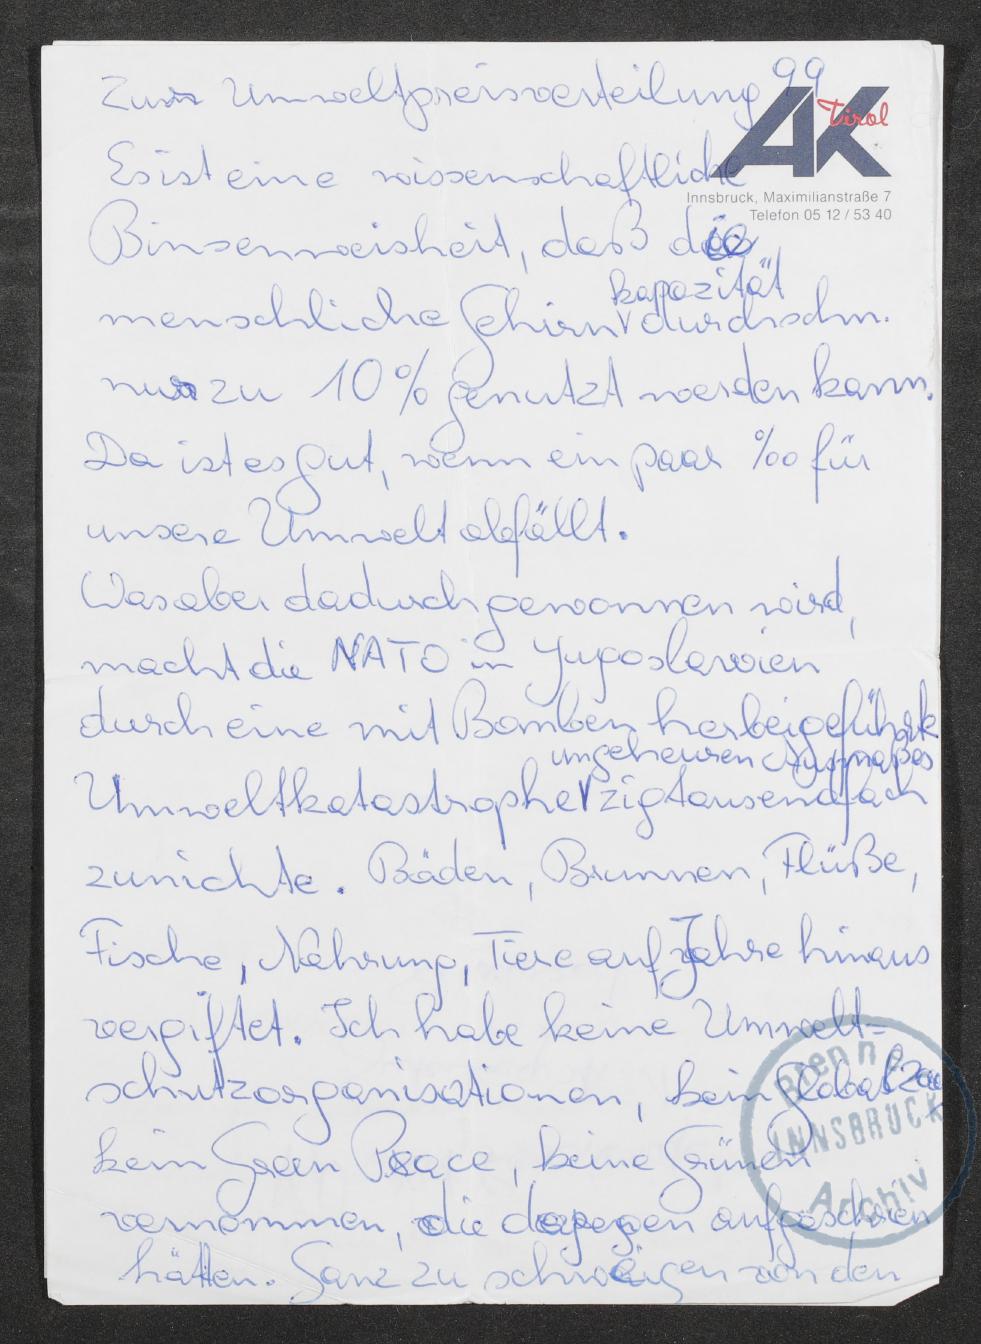 Zur Umweltpreisverteilung 99
AK Tirol
Es ist eine wissenschaftliche
Innsbruck, Maximilianstraße 7
Telefon 05 12 / 53 40
Binsenweisheit, daß die
kapazität
menschliche Gehirn durchschn.
nur zu 10 % genutzt werden kann.
Da ist es gut, wenn ein paar ‰ für
unsere Umwelt abfällt.
Was aber dadurch gewonnen wird,
macht die NATO in Jugoslawien
durch eine mit Bomben herbeigeführte
ungeheuren Ausmaßes
Umweltkatastrophe zigtausendfach
zunichte. Böden, Brunnen, Flüße,
Fische, Nahrung, Tiere auf Jahre hinaus
vergiftet. Ich habe keine Umwelt-
schutzorganisationen, kein Global 2000
kein Green Peace, keine Grünen
vernommen, die dagegen aufgeschrien
hätten. Ganz zu schweigen von den
Brenner
INNSBRUCK
Archiv